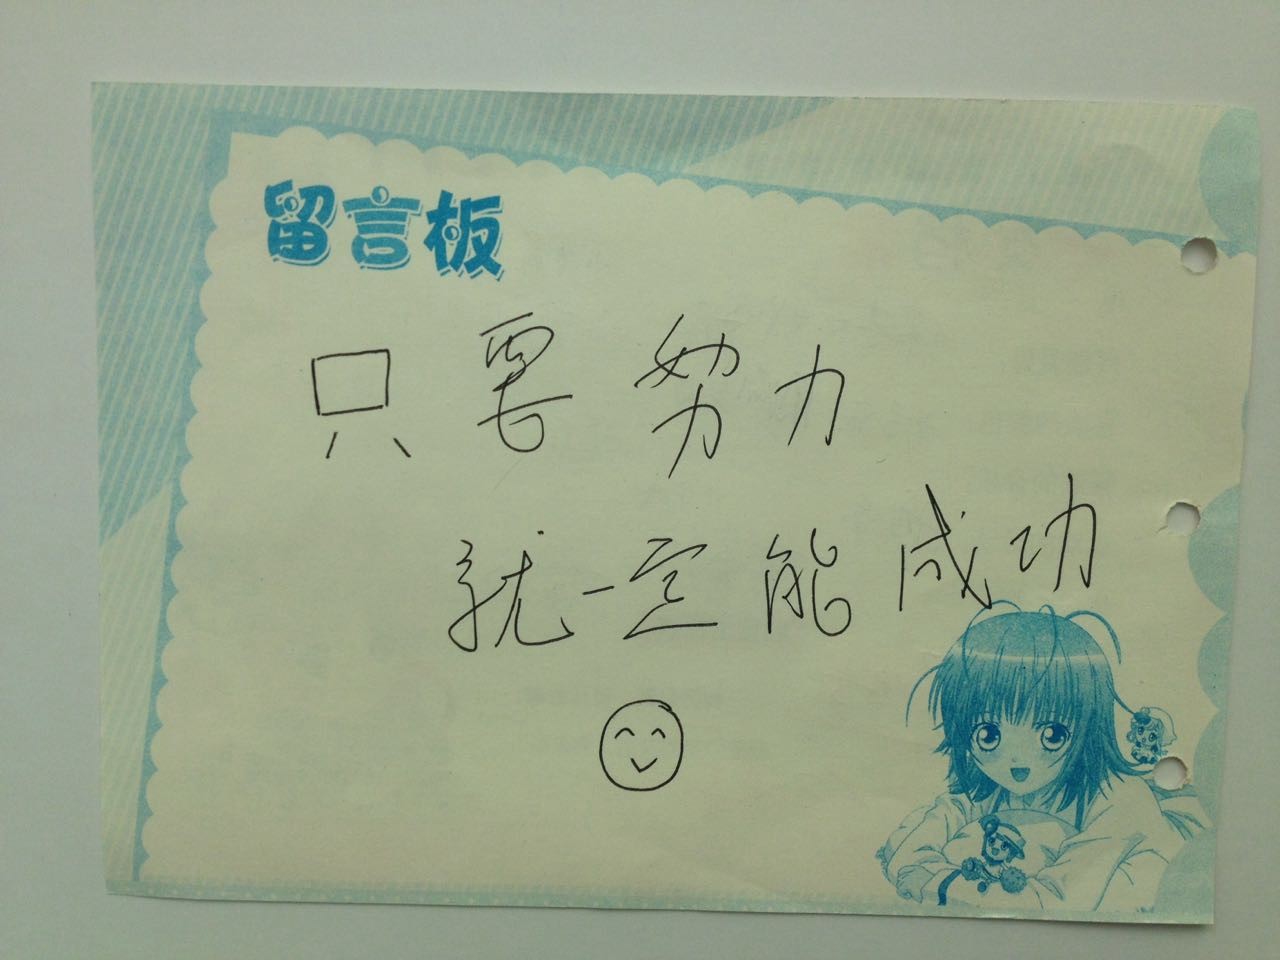 留言板
只要努力
就一定能成功